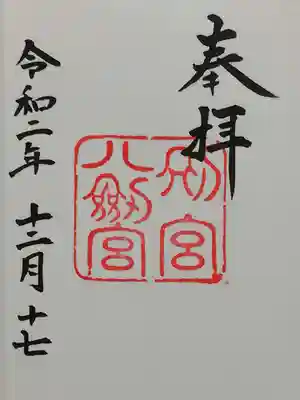 奉拝
別宮
八剱宮
令和二年 十二月十七